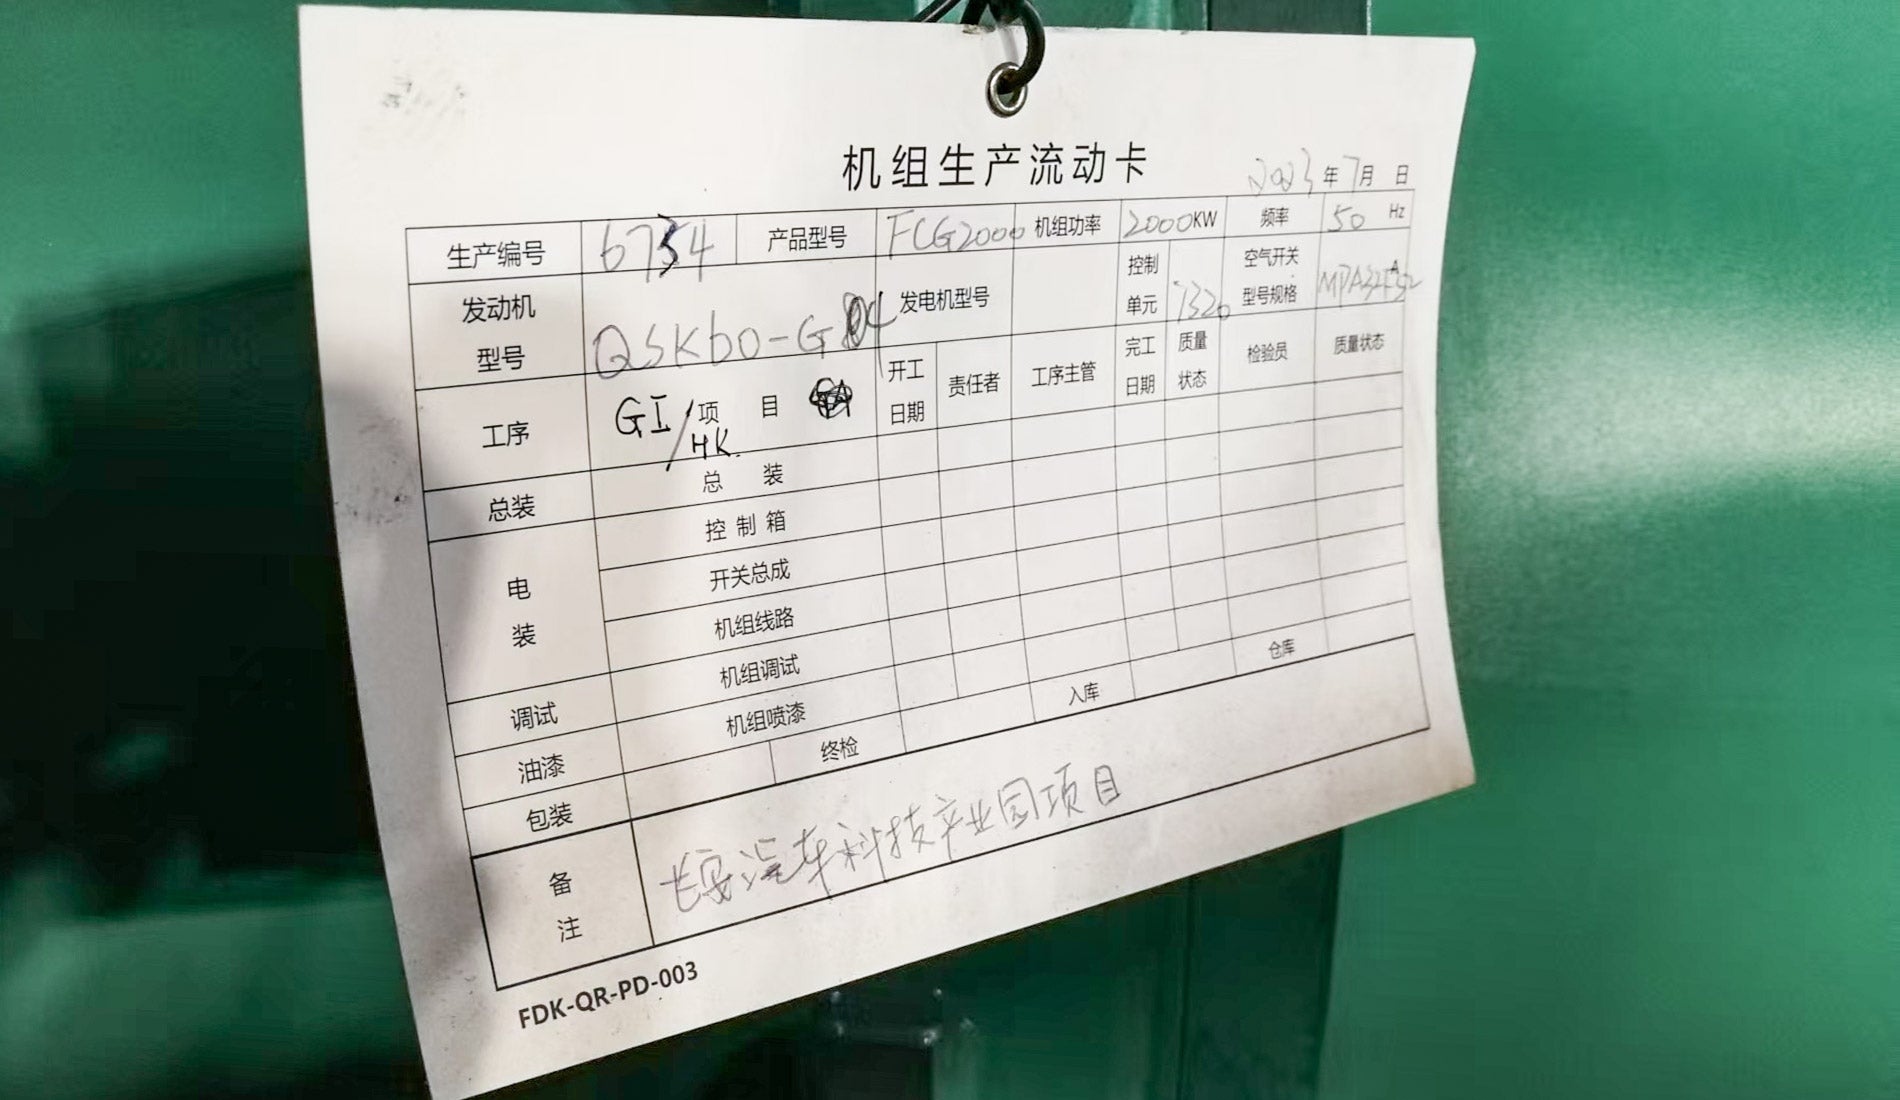 机组生产流动卡
2023年7月 日
生产编号 6754 产品型号 FCG2000 机组功率 2000KW 频率 50 Hz
发动机型号 QSK60-G 4 发电机型号 控制单元 7320 空气开关型号规格
工序 GI/HK 项目 开工日期 责任者 工序主管 完工日期 质量状态 检验员 质量状态
总装 总装
电装 控制箱
开关总成
机组线路
调试 机组调试
油漆 机组喷漆
包装 终检 入库 仓库
备注 长安汽车科技产业园项目
FDK-QR-PD-003